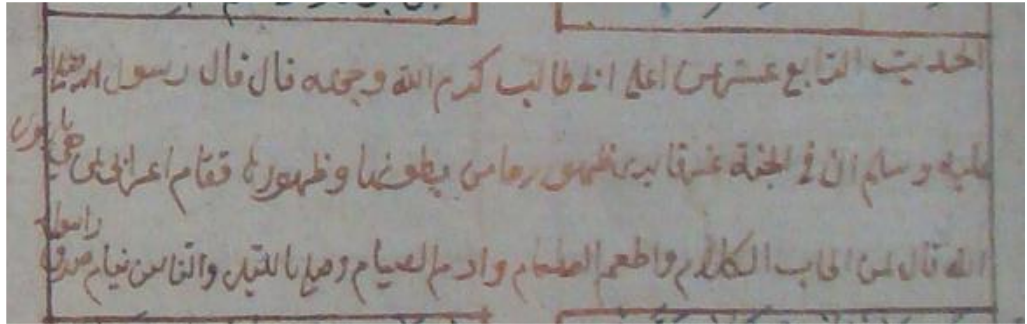 الحديث الرابع عشر عن اعلي ابي طالب كرم الله وجهه قال قال رسول الله صلي
عليه وسلم ان في الجنة غرفا يرى ظهورها من بطونها وظهورها فقام اعرابي لمن هي يا
رسول
الله قال لمن اطاب الكلام واطعم الطعام وادم الصيام وصلي بالليل والناس نيام صدق